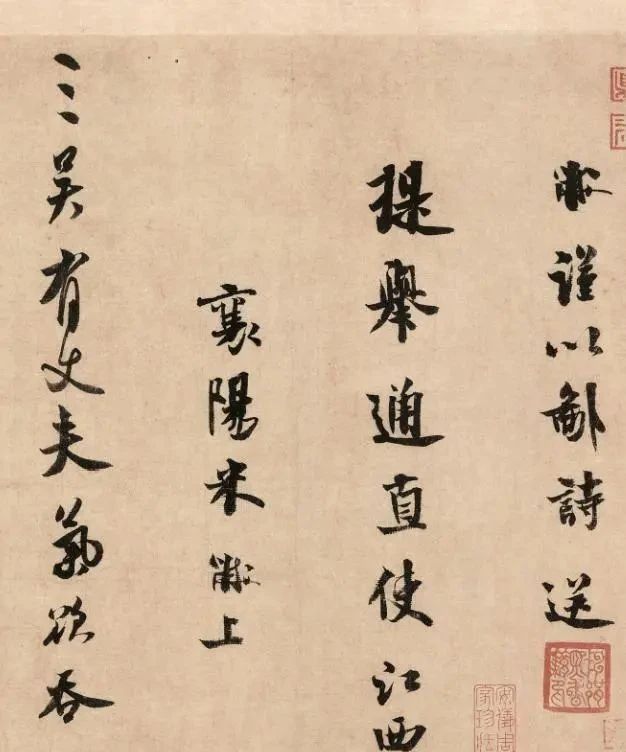 黻謹以鄙詩送
提舉通直使江西
襄陽米黻上
三吴有丈夫氣欲吞